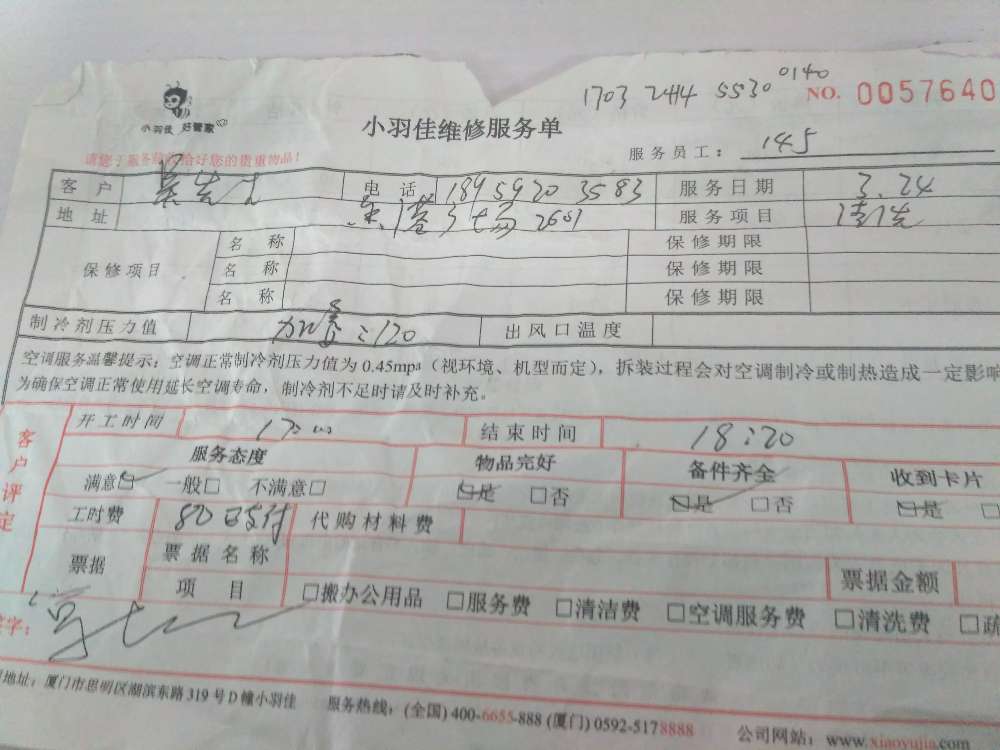 1703 2414 5530 0140
NO. 0057640
小羽佳 好管家
小羽佳维修服务单
服务员工： 145
客户 吴先生 电话 1895920 3583 服务日期 3.24
地址 2601 服务项目 清洗
保修项目 名称 保修期限
名称 保修期限
名称 保修期限
制冷剂压力值 出风口温度
空调服务温馨提示：空调正常制冷剂压力值为 0.45mpa（视环境、机型而定），拆装过程会对空调制冷或制热造成一定影响
为确保空调正常使用延长空调寿命，制冷剂不足时请及时补充。
客户评定
开工时间 结束时间 18:20
服务态度 物品完好 备件齐全 收到卡片
满意☑ 一般□ 不满意□ ☑是 □否 ☑是 □否 ☑是
工时费 80 已支付 代购材料费
票据 票据名称 票据金额
项目 □搬办公用品 □服务费 □清洁费 □空调服务费 □清洗费 □疏
签字：
地址：厦门市思明区湖滨东路 319 号 D 幢小羽佳 服务热线：(全国) 400-6655-888 (厦门) 0592-5178888 公司网站：www.xiaoyujia.com